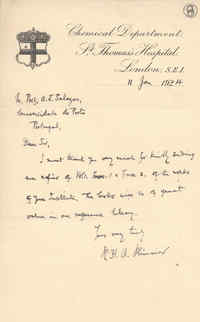 Chemical Department,
St. Thomas's Hospital,
London, S.E.1.
11 Jan 1924
Prof. A.
Universidade do Porto
Portugal.
Dear Sir,
I must thank you very much for kindly sending
me copies of of the works
of your Institute. The books will be of great
value in our reference library.
Yours very truly